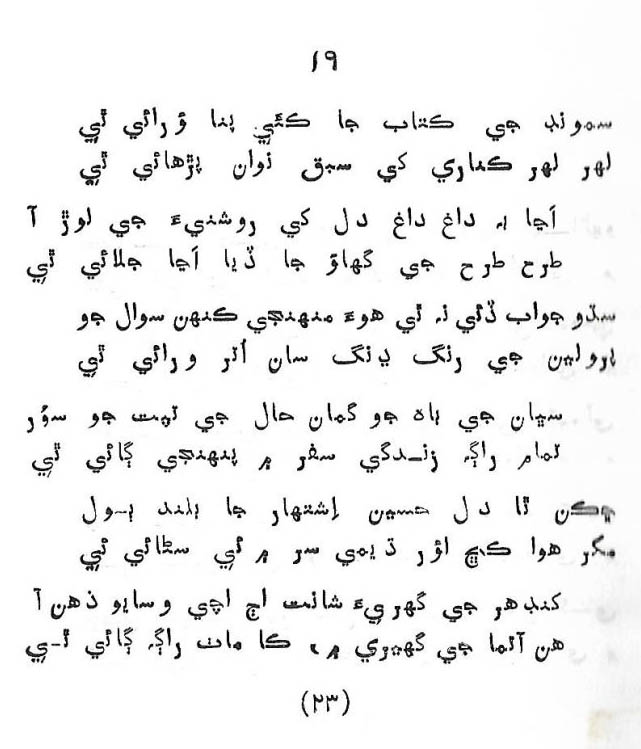 ۱۹
سمونڊ جي ڪتاب جا ڪئي پنا ؤرائي ٿي
لهر لهر ڪناري کي سبق نوان پڙهائي ٿي
اَڃا به داغ داغ دل کي روشنيءَ جي لوڙ آ
طرح طرح جي گهاؤ جا ڏيا اَڃا جلائي ٿي
سڌو جواب ڏئي نہ ٿي هوءَ منهنجي ڪنهن سوال جو
ٻرولين جي رنگ ڍنگ سان اُتر ورائي ٿي
سڀان جي ٻاھ جو گمان حال جي تپت جو سؤر
تمام راڳہ زندگي سفر ۾ پنهنجي ڳائي ٿي
ڇڪن ٿا دل حسين اِشتهار جا بلند ٻول
مگر هوا ڪڇ اؤر ڌيمي سر ۾ ئي سڻائي ٿي
کنڊهر جي گهريءَ شانت اڄ اچي وسايو ذهن آ
هن آتما جي گهيري ۾، ڪا مات راڳہ ڳائي ٿي
(۲۳)